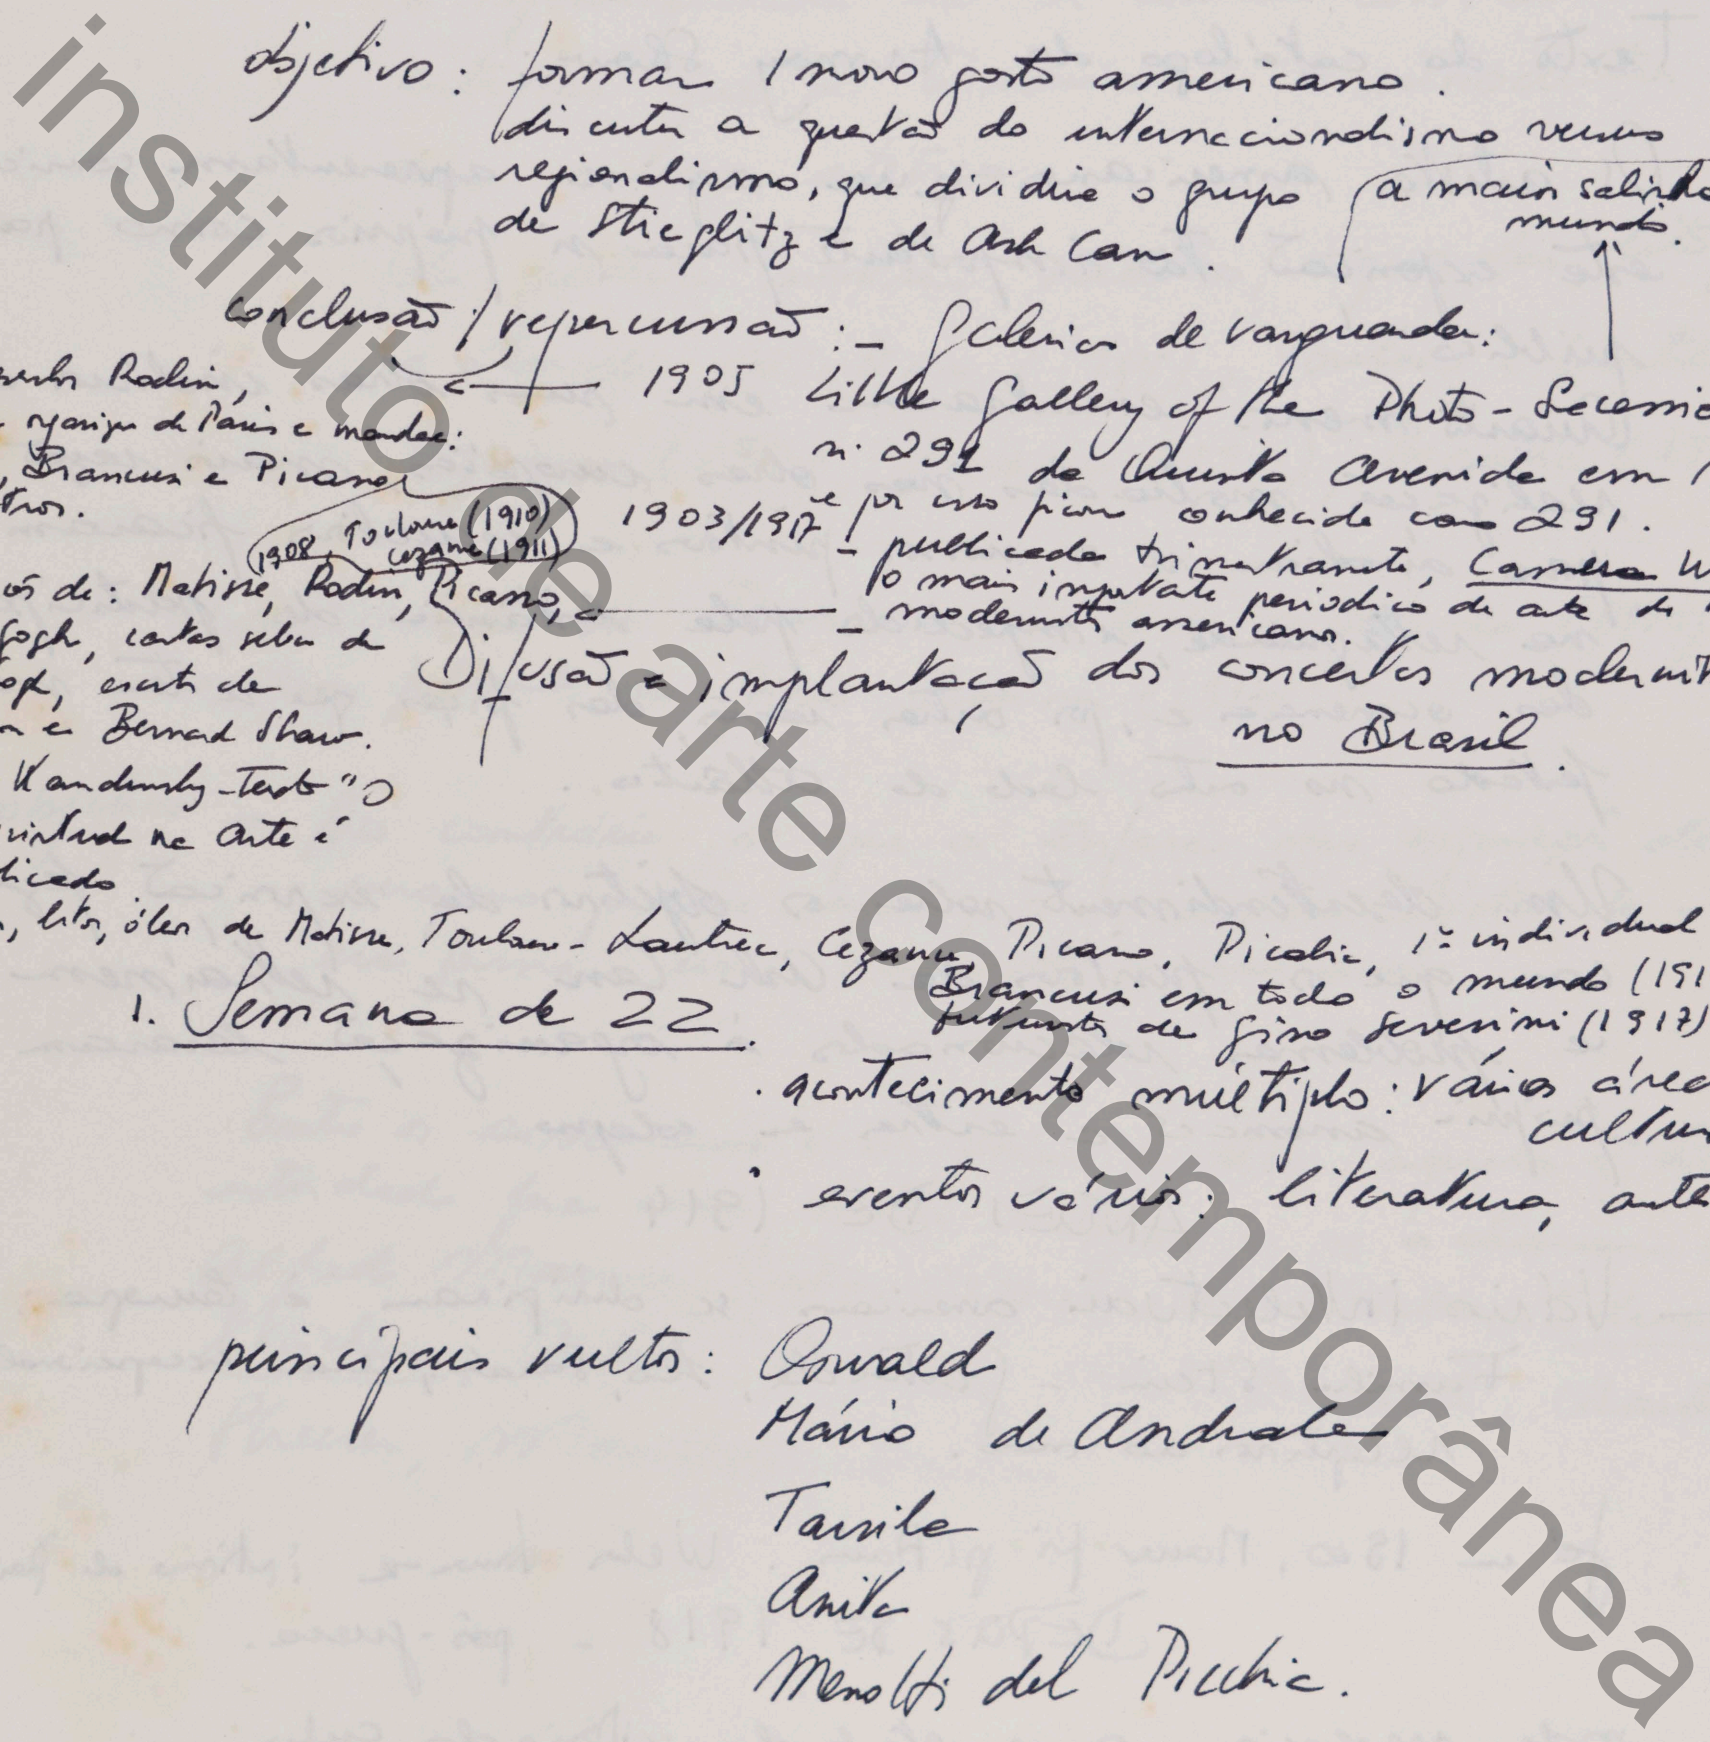 objetivo: formar 1 novo gosto americano.
discutir a questão do internacionalismo versus
regionalismo, que dividiria o grupo (a mais
de Stieglitz e de Ash Can.
mundo.
conclusão/repercussão: - Galerias de vanguarda:
1905 Little Gallery of the Photo-Secessio
n. 291 da Quinta Avenida em
e por isso ficou conhecida como 291.
1903/1917 - publicada trimestralmente, Camera W
o mais importante periódico de arte do
- modernista americano.
Rodin,
de Paris e mandar:
, Brancusi e Picasso
tros.
1908, Toulouse (1910)
Cezanne (1911)
ós de: Matisse, Rodin, Picasso,
Gogh, cartas sobre
ogh, de
Bernard Shaw.
Kandinsky - Texto "O
piritual na Arte é
licado
Difusão e implantação dos conceitos modernist
no Brasil.
, litos, óleos de Matisse, Toulouse-Lautrec, Cezanne, Picasso, Picabia, 1ª individual
Brancusi em todo o mundo (191
futurista de Gino Severini (1917)
1. Semana de 22.
. acontecimento múltiplo: várias área
cultur
. eventos vários: literatura, arte
principais vultos: Oswald
Mário de Andrade
Tarsila
Anita
Menotti del Picchia.
instituto de arte contemporânea